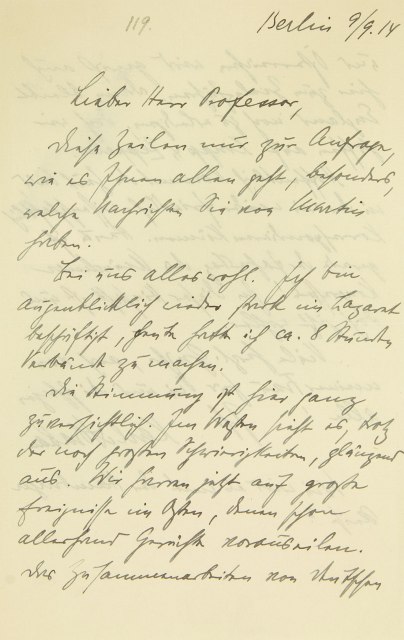 119.
Berlin 9/9.14
Lieber Herr Professor,
Diese Zeilen nur zur Anfrage,
wie es Ihnen allen geht, besonders,
welche Nachrichten Sie von Martin
haben.
Bei uns alles wohl. Ich bin
augenblicklich wieder stark im Lazaret
beschäftigt, heute hatte ich ca. 8 Stunden
Verbände zu machen.
Die Stimmung ist hier ganz
zuversichtlich. Im Westen sieht es, trotz
der noch großen Schwierigkeiten, glänzend
aus. Wir harren jetzt auf große
Ereignisse im Osten, denen schon
allerhand Gerüchte vorauseilen.
Das Zusammenarbeiten von deutschen